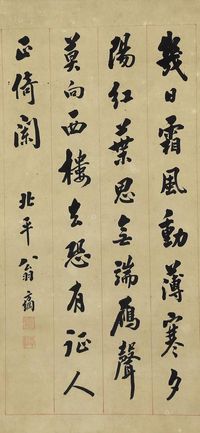 幾日霜風動薄寒夕
陽紅葉思無端鴈聲
莫向西樓去恐有征人
正倚闌 北平翁